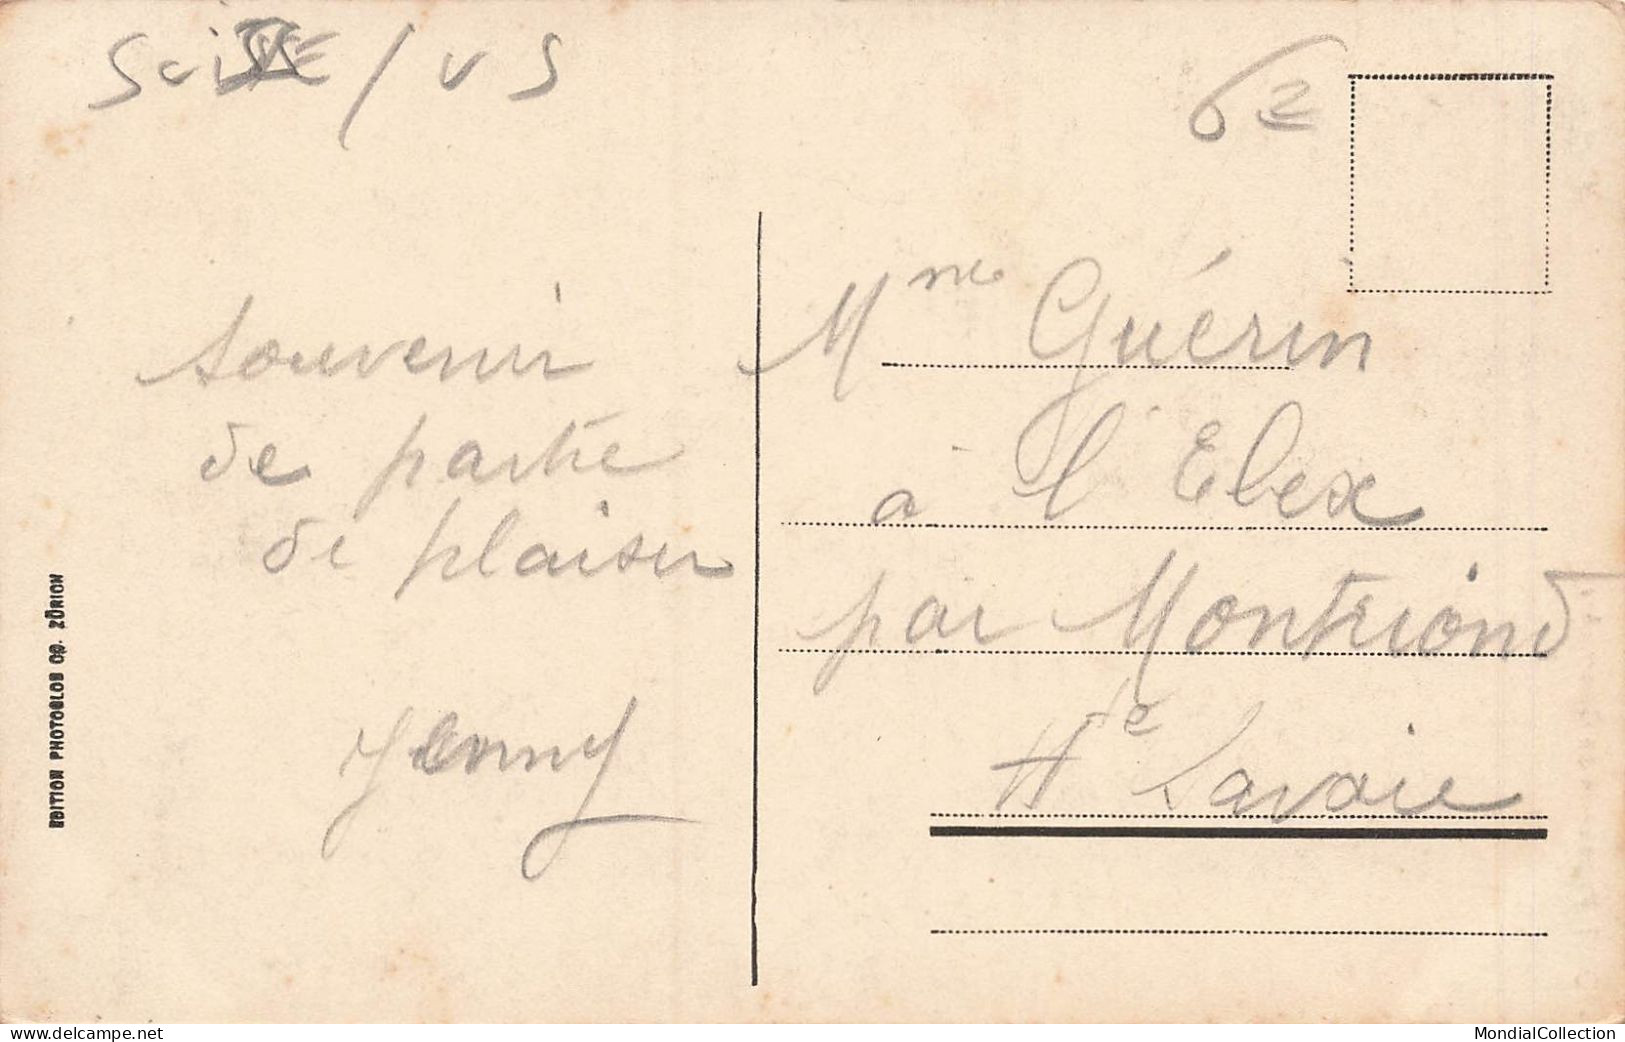 SuiSSE / VS
62
souvenir
de partie
de plaisir
Jenny
Mme Guérin
à l'Elex
par Montriond
Hte Savoie
EDITION PHOTOGLOB CO. ZÜRICH
delcampe.net
MondialCollection